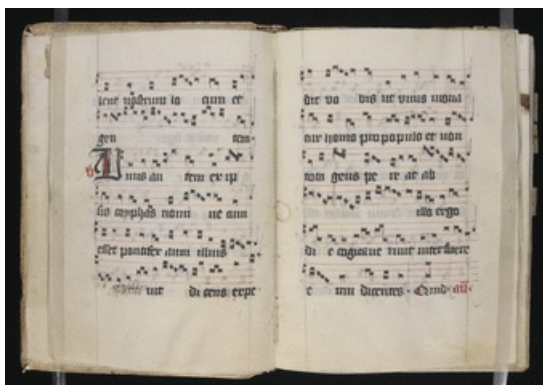 lent nostrum lo cum et
gen tem.
Unus au tem ex ip
sis cayphas nomi ne cum
esset pontifex anni illius
vit di cens expe
dit vo bis ut unus moria
tur homo pro populo et non
gens pe re at ab
illo ergo
di e cogitave runt interficere
e um dicentes. Quid